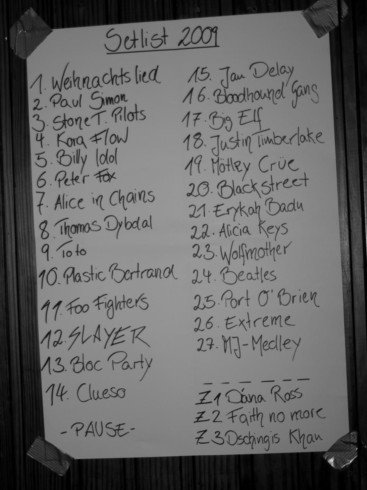 Setlist 2009
1. Weihnachtslied
2. Paul Simon
3. Stone T. Pilots
4. Kora Flow
5. Billy Idol
6. Peter Fox
7. Alice in Chains
8. Thomas Dybdal
9. Toto
10. Plastic Bertrand
11. Foo Fighters
12. SLAYER
13. Bloc Party
14. Clueso
-PAUSE-
15. Jan Delay
16. Bloodhound Gang
17. Big Elf
18. Justin Timberlake
19. Mötley Crüe
20. Blackstreet
21. Erykah Badu
22. Alicia Keys
23. Wolfmother
24. Beatles
25. Port O'Brien
26. Extreme
27. MJ-Medley
Z1 Diana Ross
Z2 Faith no more
Z3 Dschingis Khan